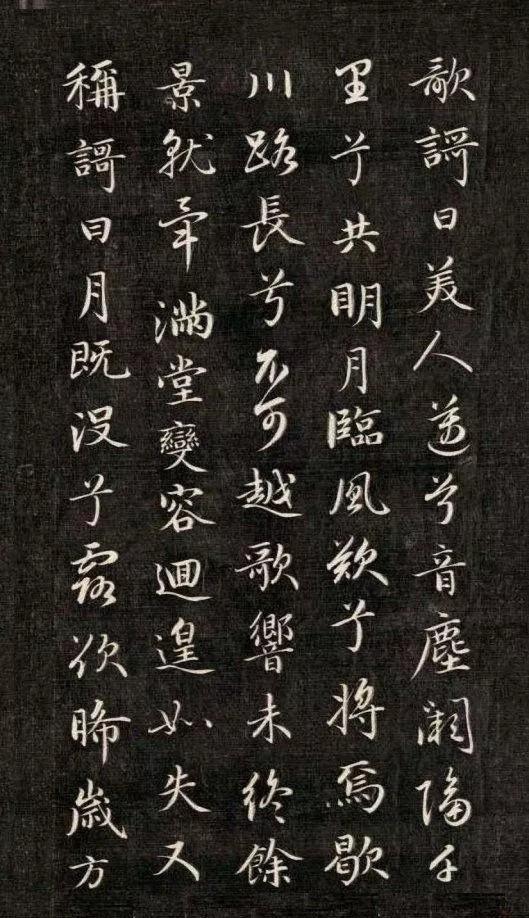 歌謌曰美人邁兮音塵闕隔千
里兮共明月臨風歎兮將焉歇
川路長兮不可越歌響未終餘
景就畢滿堂變容迴遑如失又
稱謌曰月既沒兮露欲晞歲方